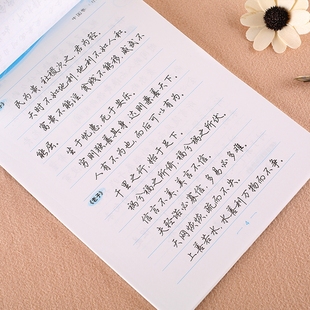 民为贵，社稷次之，君为轻。
天时不如地利，地利不如人和
富贵不能淫，贫贱不能移，威武不
能屈。 生于忧患，死于安乐。
穷则独善其身，达则兼善天下。
人有不为也，而后可以有为。
《老子》
千里之行，始于足下。
祸兮福之所倚，福兮祸之所伏
信言不美，美言不信。
夫轻诺必寡信，多易必多难
天网恢恢，疏而不失。
上善若水，水善利万物而不争。